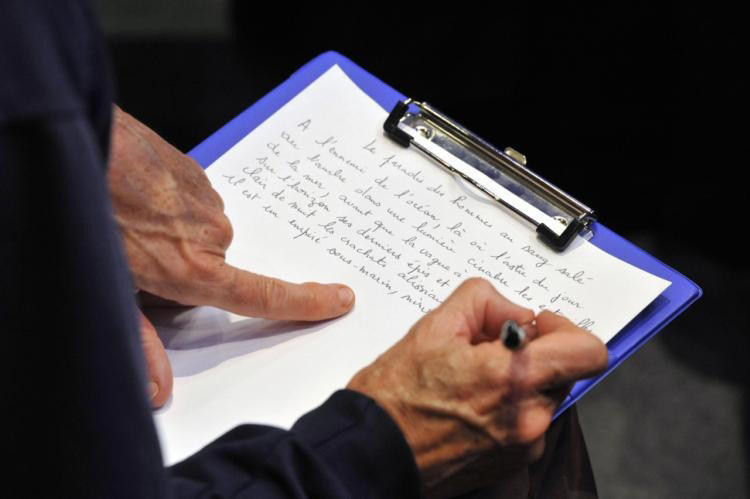 Le paradis des hommes au sang salé
A de l'océan, là où l'astre du jour
dans une lumière cinabre les
de la mer, avant que la vague
sur l'horizon ses derniers épis et
clair de nuit la crachats
Il est un empire sous-marin,